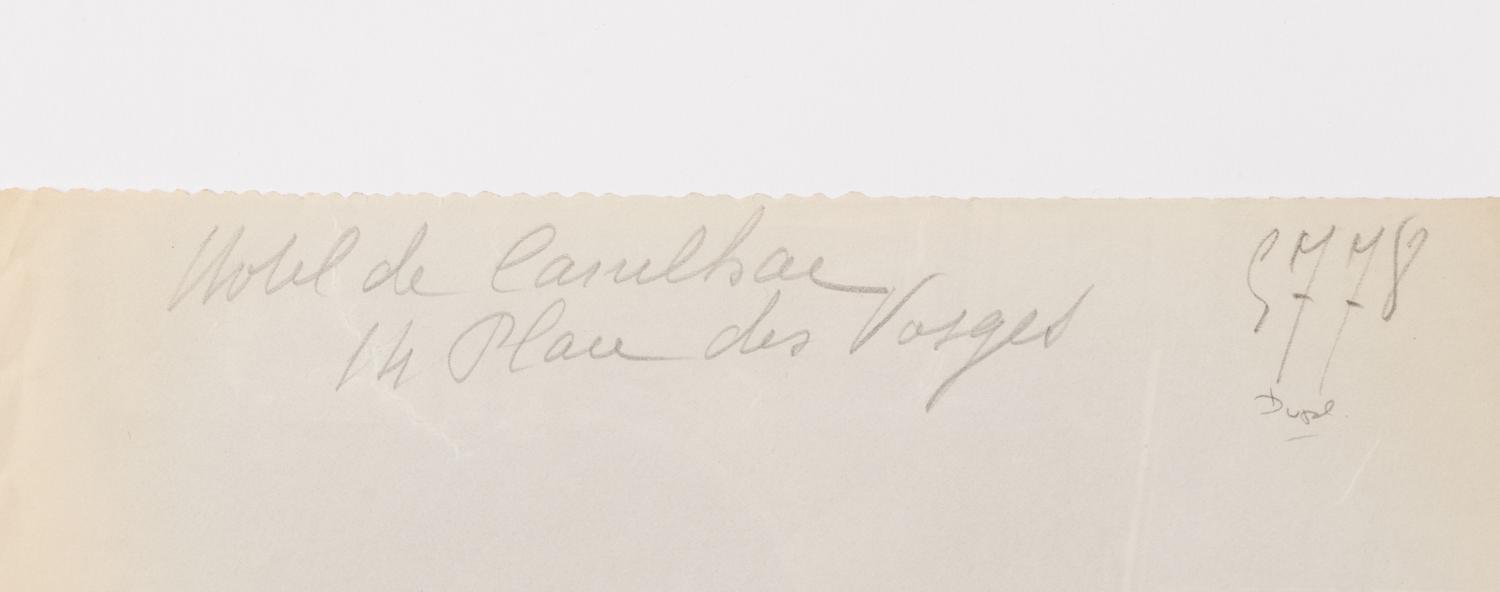 Hotel de
14 Place des Vosges
5778
Dupl.